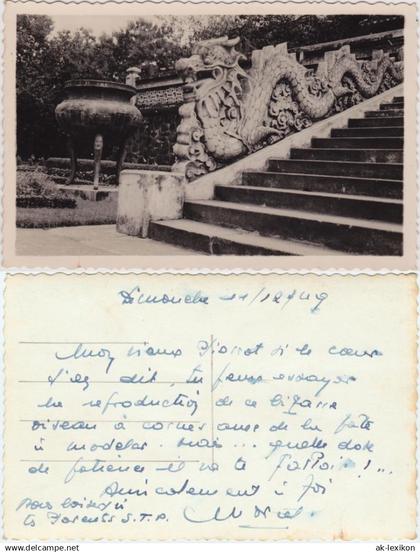 Dimanche 11/12/49
Mon vieux Pierrot si le cœur
t'en dit, tu peux essayer
la reproduction de ce bizarre
oiseau à cornes avec de la pâte
à modeler. Mais ... quelle dose
de patience il va te falloir !...
Amicalement à toi
Mon bonjour
to Parents S.T.P.
Marcel
ak-lexikon